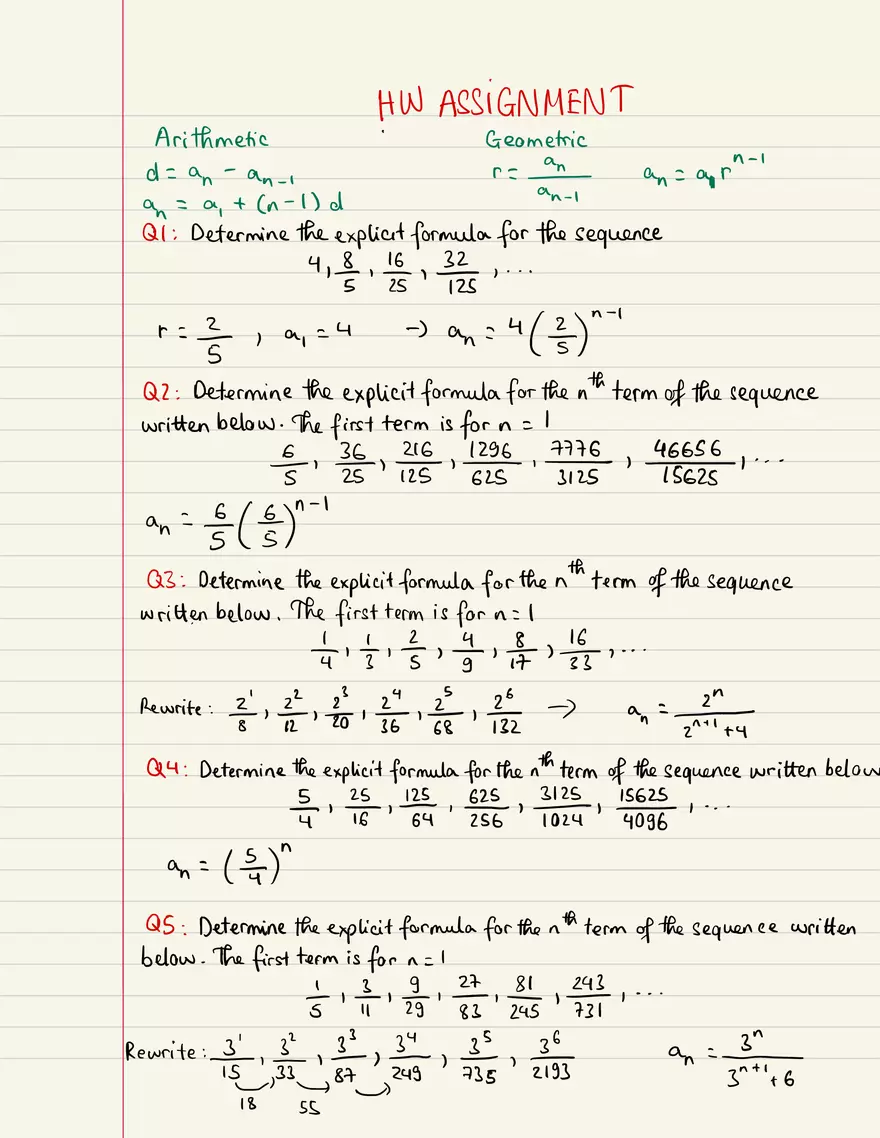 HW ASSIGNMENT
Arithmetic Geometric
d = aₙ - aₙ₋₁ r = aₙ/aₙ₋₁ aₙ = a₁ rⁿ⁻¹
aₙ = a₁ + (n-1) d
Q1: Determine the explicit formula for the sequence
4, 8/5, 16/25, 32/125, ...
r = 2/5, a₁ = 4 → aₙ = 4(2/5)ⁿ⁻¹
Q2: Determine the explicit formula for the nᵗʰ term of the sequence
written below. The first term is for n = 1
6/5, 36/25, 216/125, 1296/625, 7776/3125, 46656/15625, ...
aₙ = 6/5 (6/5)ⁿ⁻¹
Q3: Determine the explicit formula for the nᵗʰ term of the sequence
written below. The first term is for n = 1
1/4, 1/3, 2/5, 4/9, 8/17, 16/33, ...
Rewrite: 2¹/8, 2²/12, 2³/20, 2⁴/36, 2⁵/68, 2⁶/132 → aₙ = 2ⁿ/(2ⁿ⁺¹ + 4)
Q4: Determine the explicit formula for the nᵗʰ term of the sequence written below
5/4, 25/16, 125/64, 625/256, 3125/1024, 15625/4096, ...
aₙ = (5/4)ⁿ
Q5: Determine the explicit formula for the nᵗʰ term of the sequence written
below. The first term is for n = 1
1/5, 3/11, 9/29, 27/83, 81/245, 243/731, ...
Rewrite: 3¹/15, 3²/33, 3³/87, 3⁴/249, 3⁵/735, 3⁶/2193 aₙ = 3ⁿ/(3ⁿ⁺¹ + 6)
18 55